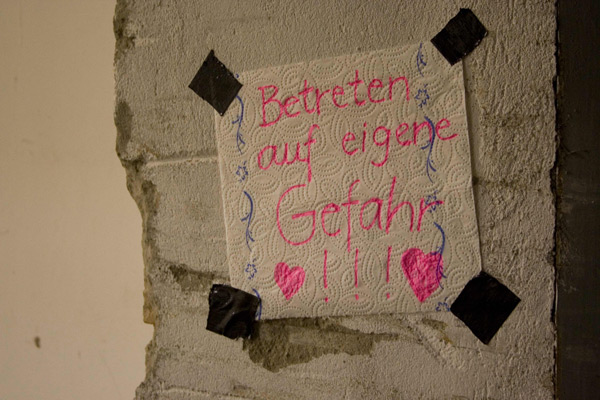 Betreten
auf eigene
Gefahr
!!!